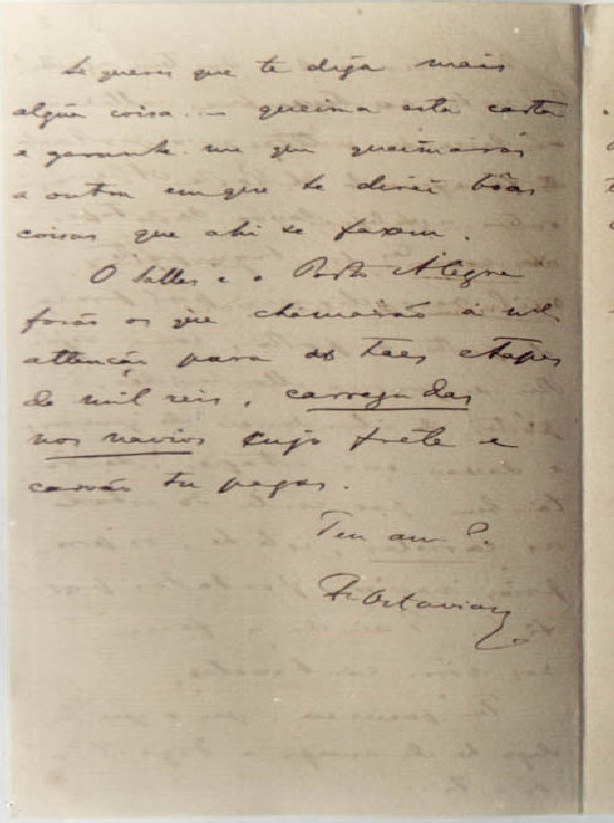 Se queres que te diga mais
algũa coisa... — queima esta carta
e garante-me que queimarás
a outra em que te direi bôas
coisas que ahi se fazem.
O Salles e o Porto Alegre
forão os que chamarão a
attenção para as taes etapes
de mil reis, carregadas
nos navios cujo frete e
carvão tu pagas.
Teu am.º
F. Octaviano